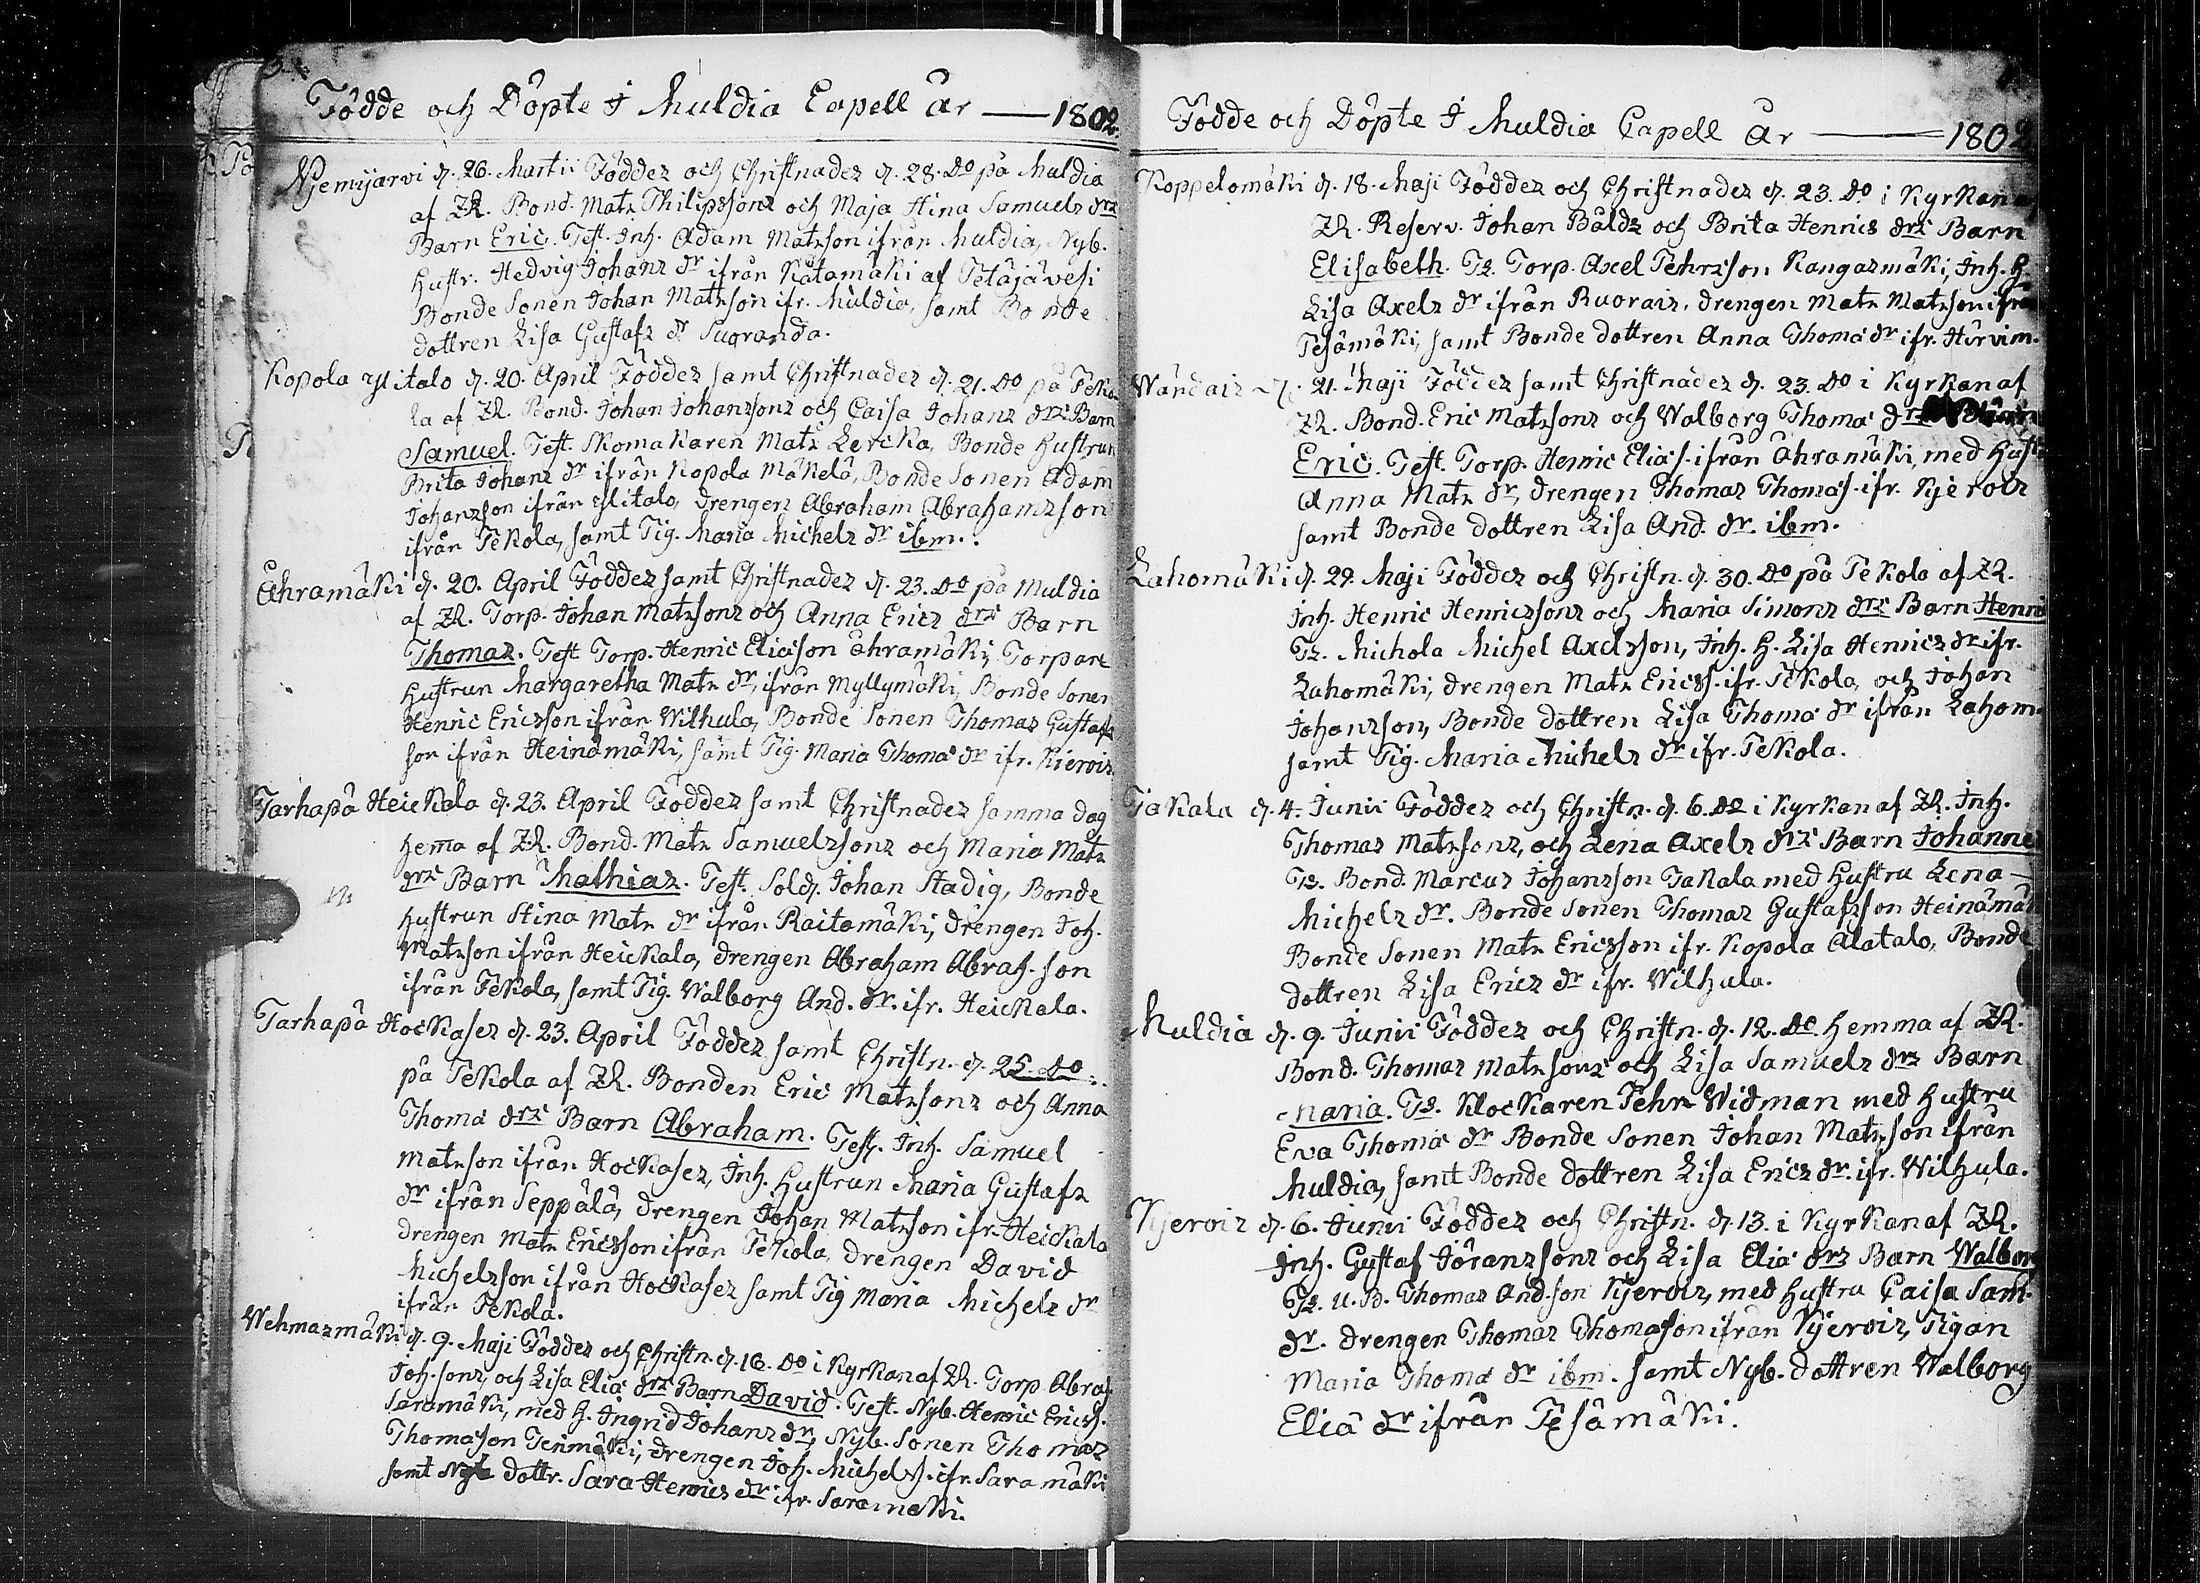 Födde och Döpte I Muldia Capell år — 1802.
Njemijarvi d. 26. Martii Föddes och Christnades d. 28. Do på Muldia
af ER. Bond. Mats Philipssons och Maja Stina Samuels drs
Barn Eric. Test. Inh. Adam Matsson ifrån Muldia, Nyb.
Hustr. Hedvig Johans dr ifrån Kåtamäki af Petäjävesi
Bonde Sonen Johan Matsson ifr. Muldia, samt Bonde
dottren Lisa Gustafs dr Suoranda.
Kopola Ylitalo d. 20. April Föddes samt Christnades d. 21. Do på Teko
la af ER. Bond. Johan Johanssons och Caisa Johans drs Barn
Samuel. Test. Skomakaren Mats Lercka, Bonde Hustrun
Brita Johans dr ifrån Kopola Mäkelä, Bonde Sonen Adam
Johansson ifrån Ylitalo, drengen Abraham Abrahamsson
ifrån Tekola, samt Pig. Maria Michels dr ibm.
Åhramäki d. 20. April Föddes samt Christnades d. 23. Do på Muldia
af ER. Torp. Johan Matssons och Anna Erics drs Barn
Thomas. Test Torp. Henric Eliasson Åhramäki, Torpare
Hustrun Margaretha Mats dr, ifrån Myllymäki, Bonde Sonen
Henric Ericsson ifrån Wilhula, Bonde Sonen Thomas Gustafs
son ifrån Heinämäki, samt Pig. Maria Thomæ dr ifr. Kierois
Tarhapä Heickala d. 23. April Föddes samt Christnades samma dag
hemma af ER. Bond. Mats Samuelssons och Maria Mats
drs Barn Mathias. Test. Sold. Johan Stadig, Bonde
Hustrun Stina Mats dr ifrån Raitomäki, drengen Joh.
Matsson ifrån Heickala, drengen Abraham Abrah. son
ifrån Tekola, samt Pig. Walborg And. dr. ifr. Heickala.
Tarhapä Hockases d. 23. April Föddes samt Christn. d. 25. Do
på Tekola af ER. Bonden Eric Matssons och Anna
Thomæ drs Barn Abraham. Test. Inh. Samuel
Matsson ifrån Hockases, Inh. Hustrun Maria Gustafs
dr ifrån Seppälä, drengen Johan Matsson ifr. Heickala
drengen Mats Ericsson ifrån Tekola, drengen David
Michelsson ifrån Hockases samt Pig Maria Michels dr
ifrån Tekola.
Wehmasmäki d. 9. Maji Föddes och Christn. d. 16. Do i Kyrkan af ER. Torp. Abrah
Joh. sons och Lisa Eliæ drs Barn David. Test. Nyb. Henric Erics s.
Saramäki, med H. Ingrid Johans dr, Nyb. Sonen Thomas
Thomasson Tenmäki, drengen Joh. Michels s. ifr. Saramäki
samt Nyb dottr. Sara Henrics dr ifr. Saramäki.
Födde och Döpte I Muldia Capell År — 1802
Koppelomäki d. 18. Maji Föddes och Christnades d. 23. Do i Kyrkan af
ER. Reserv. Johan Bålds och Brita Henrics drs Barn
Elisabeth. Ts. Torp. Axel Pehrsson Kangasmäki, Inh. H.
Lisa Axels dr ifrån Ruorais, drengen Mats Matsson ifrån
Pesämäki, samt Bonde dottren Anna Thomæ dr ifr. Hirvim.
Wändais d. 21. Maji Föddes samt Christnades d. 23. Do i Kyrkan af
ER. Bond. Eric Matssons och Walborg Thomæ drs Barn
Eric. Test. Torp. Henric Eliæs. ifrån Åhramäki, med Hust
Anna Mats dr, drengen Thomas Thomæs. ifr. Kjerois
samt Bonde dottren Lisa And. dr. ibm.
Lahomäki d. 29. Maji Föddes och Christn. d. 30. Do på Tekola af ER.
Inh. Henric Henricssons och Maria Simons drs Barn Henric
Ts. Michola Michel Axelsson, Inh. H. Lisa Henrics dr ifr.
Lahomäki, drengen Mats Erics s. ifr. Tekola, och Johan
Johansson, Bonde dottren Lisa Thomæ dr ifrån Lahom.
samt Pig. Maria Michels dr ifr. Tekola.
Jakala d. 4. Junii Föddes och Christn. d. 6. Do i Kyrkan af ER. Inh.
Thomas Matssons, och Lena Axels drs Barn Johannes
Ts. Bond. Marcus Johansson Jakala med Hustru Lena
Michels dr. Bonde Sonen Thomas Gustafsson Heinämä
Bonde Sonen Mats Ericsson ifr. Kopola Alatalo, Bonde
dottren Lisa Erics dr ifr. Wilhula.
Muldia d. 9. Junii Föddes och Christn. d. 12. Do hemma af ER.
Bond. Thomas Matssons och Lisa Samuels drs Barn
Maria. Ts. Klockaren Pehr Widman med Hustru
Eva Thomæ dr Bonde Sonen Johan Matsson ifrån
Muldia, samt Bonde dottren Lisa Erics dr. ifr. Wilhula.
Kjerois d. 6. Junii Föddes och Christn. d. 13. i Kyrkan af ER.
Inh. Gustaf Jöranssons och Lisa Eliæ drs Barn Walborg
Ts. U. B. Thomas And.son Kjerois, med Hustru Caisa Sam.
dr. drengen Thomas Thomasson ifrån Kjerois, Pigan
Maria Thomæ dr ibm. samt Nyb. dottren Walborg
Eliæ dr ifrån Pesämäki.